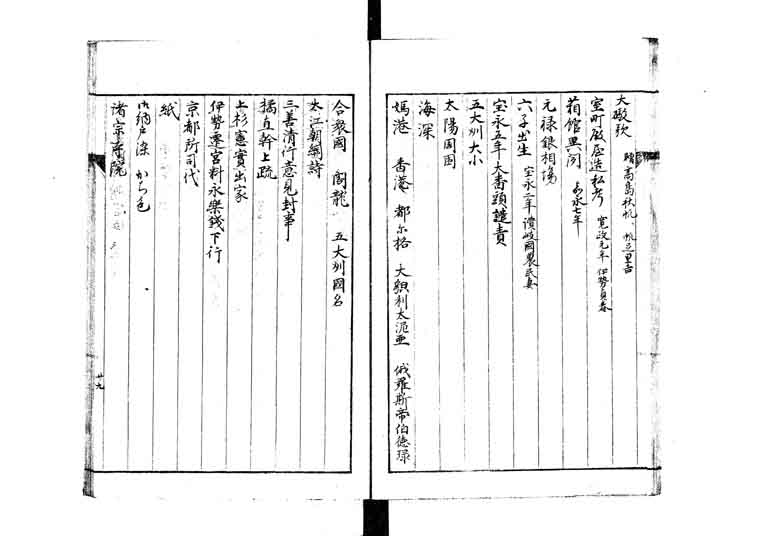 大砲歌 贈高島秋帆、帆立里言
室町殿屋造私考 寛政元年 伊勢貞春
箱館異聞 嘉永七年
元禄銀相場
六子出生 宝永二年 讃岐國農民妻
宝永五年大番頭譴責
五大州大小
太陽周囲
海深
媽港 香港 都尓格 大貌利太泥亜 俄羅斯帝伯徳琭
合衆國 閣龍 五大州國名
大江朝綱詩
三善清行意見封事
橘直幹上疏
上杉憲實出家
伊勢遷宮料永楽錢下行
京都所司代
紙
御納戸染 かち色
諸宗寺院
廿九